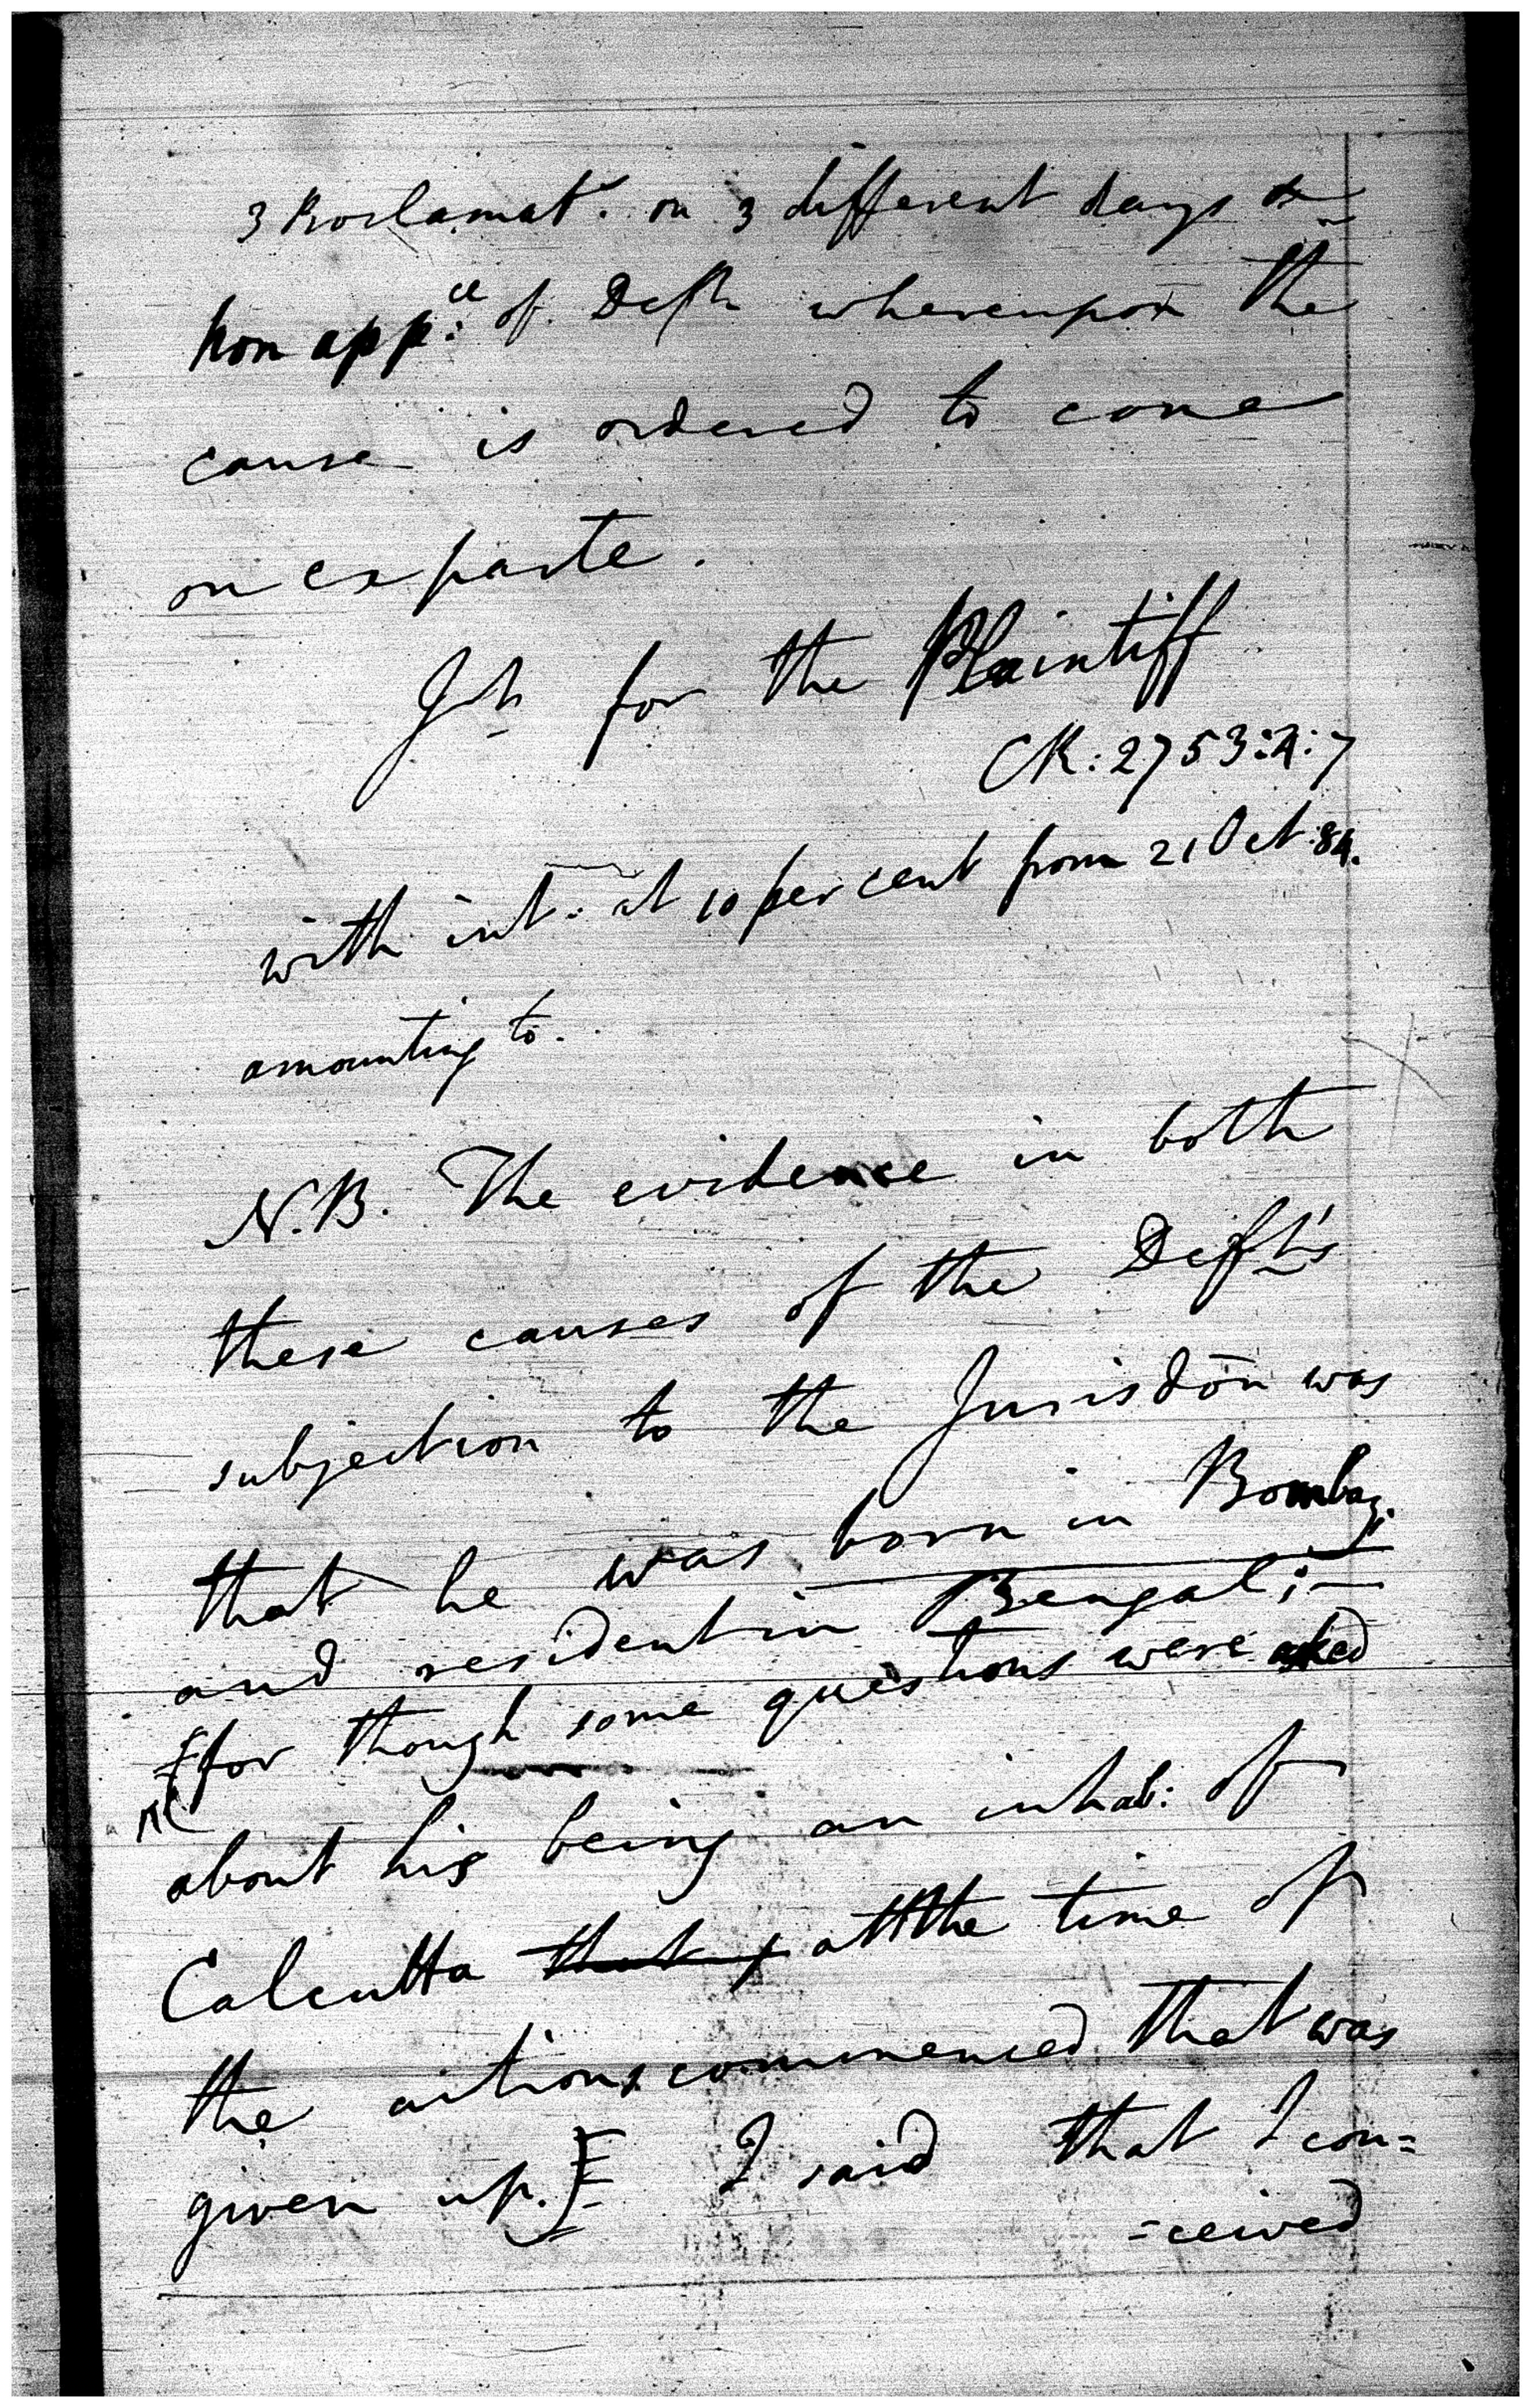 3 Proclamat.ⁿ on 3 different days &
Non app:ce of Deft whereupon the
cause is ordered to come
on ex parte.
Jt for the Plaintiff
CR: 2753:2:7
with int: at 10 per cent from 21 Oct: 84.
amounting to.
N.B. The evidence in both
these causes of the Deft's
subjection to the Jurisdōn was
that he was born in Bombay
and resident in Bengal; —
[for though some questions were asked
about his being an inhab: of
Calcutta at the time of
the actions commenced that was
given up.] I said that I con=
=ceived